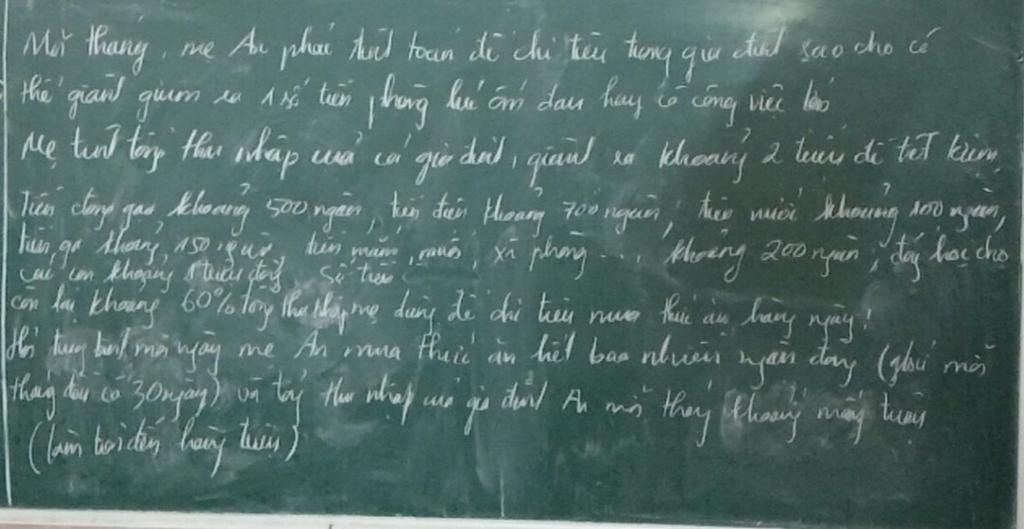 Mỗi tháng, mẹ An phải tính toán để chi tiêu trong gia đình sao cho có
thể giành giụm ra 1 số tiền phòng lúc ốm đau hay có công việc lớn
Mẹ tính tổng thu nhập của cả gia đình, giành ra khoảng 2 triệu để tiết kiệm,
Tiền đong gạo khoảng 500 ngàn, tiền điện khoảng 700 ngàn, tiền nước khoảng 100 ngàn,
tiền ga khoảng 150 ngàn tiền mắm, muối, xà phòng ... khoảng 200 ngàn, đóng học cho
các con khoảng 1 triệu đồng Số tiền
còn lại khoảng 60% tổng thu nhập mẹ dùng để chi tiêu mua thức ăn hàng ngày.
Hỏi trung bình mỗi ngày mẹ An mua thức ăn hết bao nhiêu ngàn đồng (giả sử mỗi
tháng đều có 30 ngày) và tổng thu nhập của gia đình An mỗi tháng khoảng mấy triệu
(làm tròn đến hàng triệu)